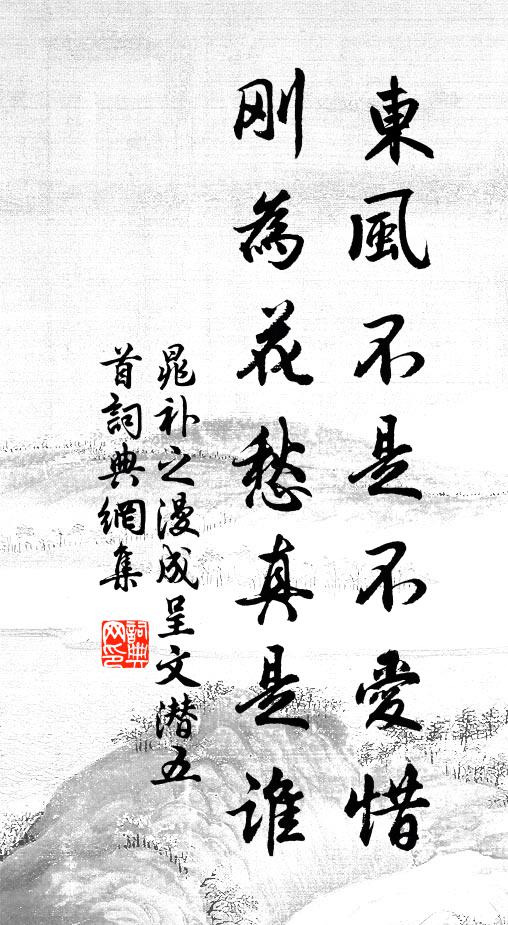 東風不是不愛惜
刚為花愁真是誰
晁补之漫成呈文潜五
首詞典網集
詞典
网印